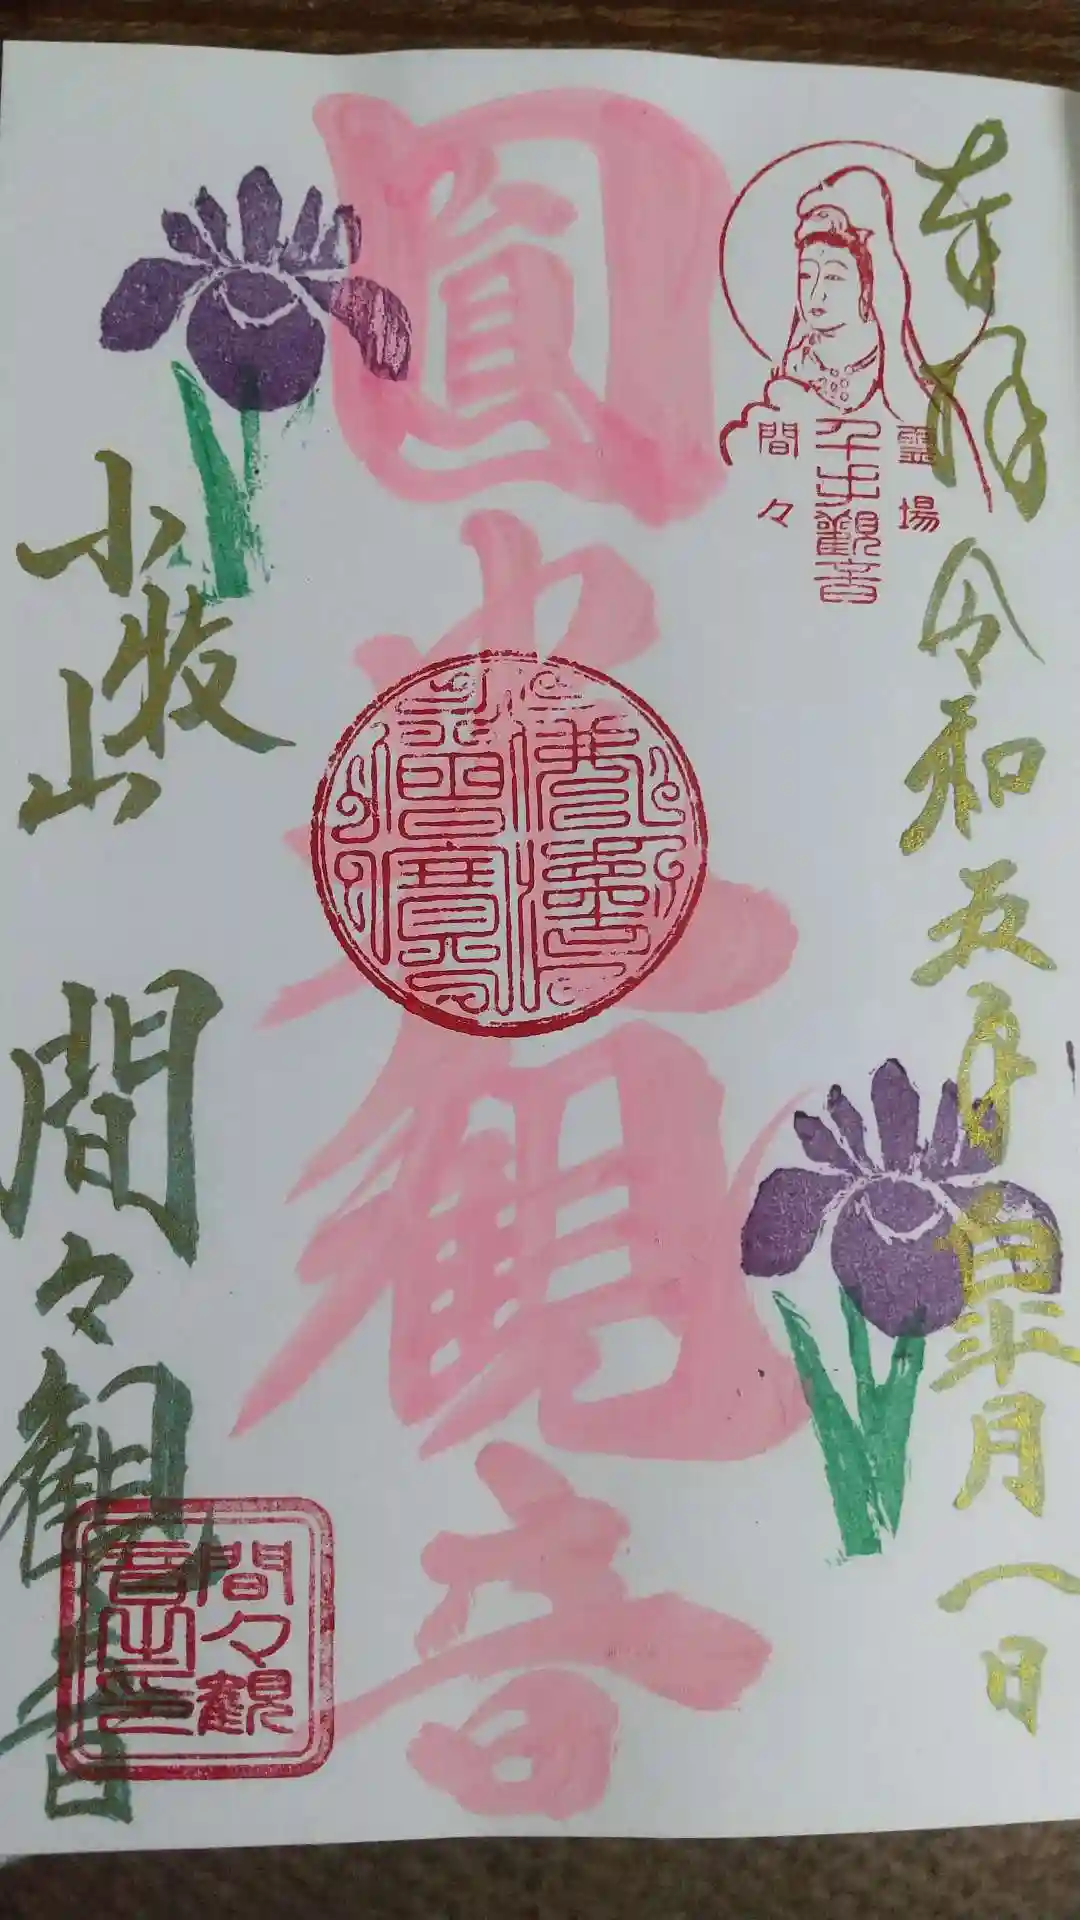 奉拝
令和五年皐月一日
霊場
千手觀音
間々
圓光観音
小牧山
間々観音
間々観
音之印